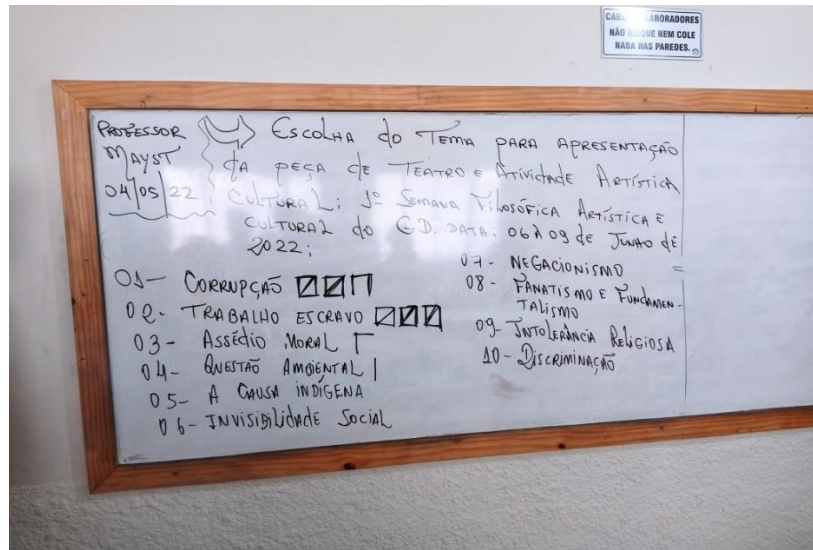 CAROS COLABORADORES
NÃO BLOQUE NEM COLE
NADA NAS PAREDES.
PROFESSOR
MAYST
04/05/22
Escolha do Tema para apresentação
da peça de Teatro e Atividade Artística
Cultural: 1º Semana Filosófica Artística e
Cultural do GD. DATA: 06 à 09 de Junho de
2022:
01- Corrupção
02- Trabalho escravo
03- Assédio Moral
04- Questão Ambiental
05- A Causa indígena
06- Invisibilidade Social
07- Negacionismo
08- Fanatismo e Fundamen-
talismo
09- Intolerância Religiosa
10- Discriminação